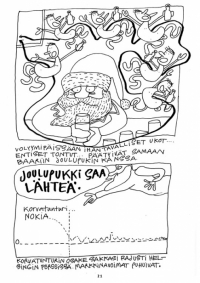 VOLTYMPÄISSÄÄN IHANTAVALLISET UKOT...
ENTISET TONTUT. PÄÄTYIVÄT SAMAAN
BAARIIN JOULUPUKIN KANSSA
JOULUPUKKI SAA
LÄHTEÄ.
Korvatunturi...
NOKIA
KORVATUNTURIN OSAKE SAKKASI RAJUSTI HEL-
SINGIN PÖRSSISSÄ MARKKINAVOIMAT PUHUIVAT.
23